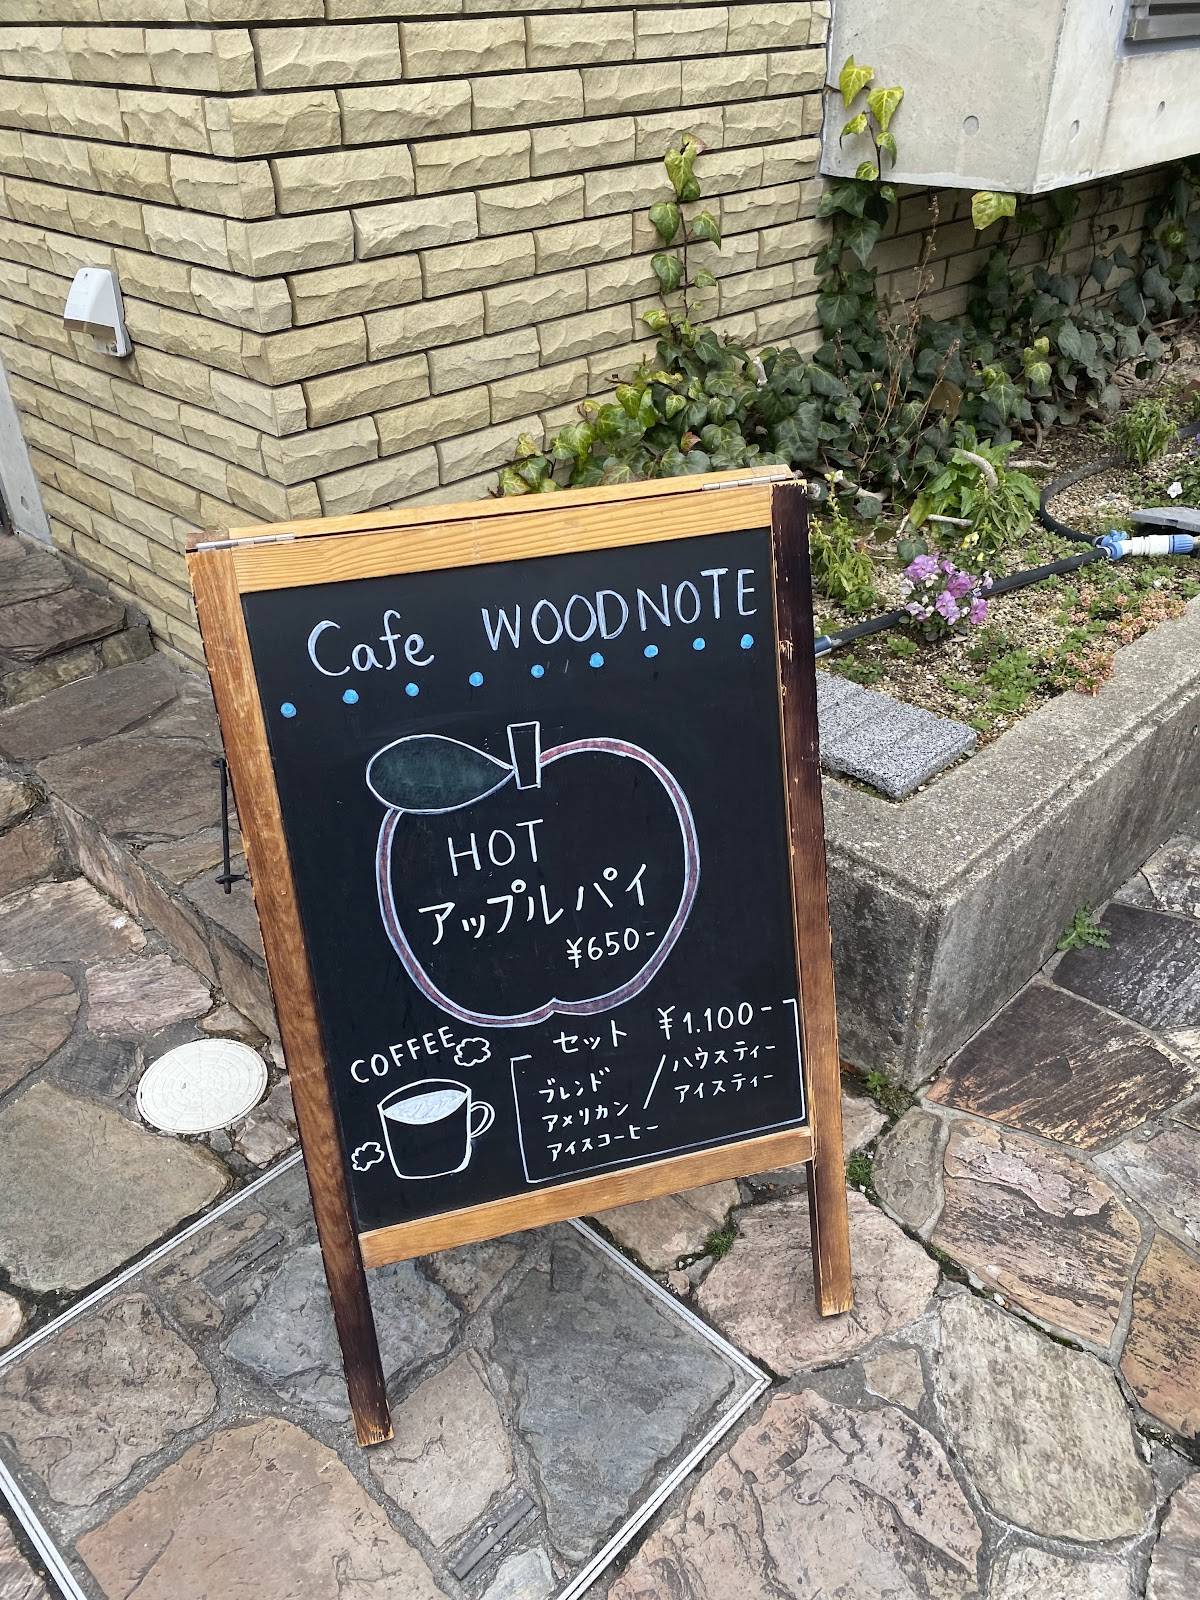 Cafe WOODNOTE
HOT
アップルパイ
¥650-
COFFEE
セット ¥1.100-
ブレンド / ハウスティー
アメリカン アイスティー
アイスコーヒー